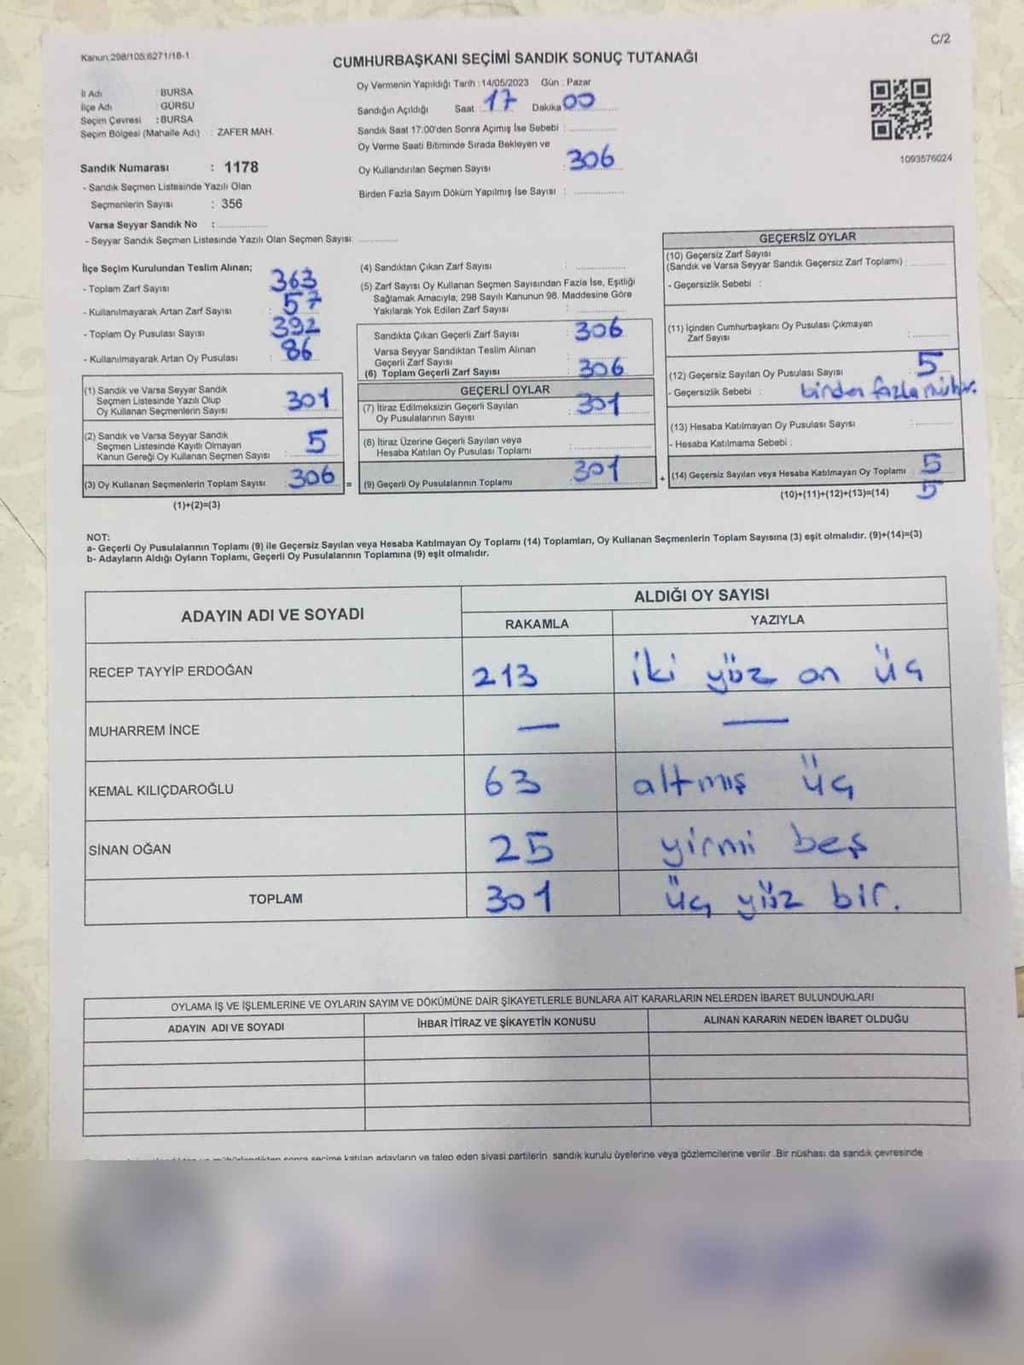 Kanun:298/105;6271/18-1
C/2
CUMHURBAŞKANI SEÇİMİ SANDIK SONUÇ TUTANAĞI
İl Adı : BURSA
İlçe Adı : GÜRSU
Seçim Çevresi : BURSA
Seçim Bölgesi (Mahalle Adı) : ZAFER MAH.
Sandık Numarası : 1178
- Sandık Seçmen Listesinde Yazılı Olan
Seçmenlerin Sayısı : 356
Varsa Seyyar Sandık No :
- Seyyar Sandık Seçmen Listesinde Yazılı Olan Seçmen Sayısı:
Oy Vermenin Yapıldığı Tarih : 14/05/2023 Gün : Pazar
Sandığın Açıldığı Saat 17 Dakika 00
Sandık Saat 17:00'den Sonra Açımış İse Sebebi :
Oy Verme Saati Bitiminde Sırada Bekleyen ve
Oy Kullandırılan Seçmen Sayısı : 306
Birden Fazla Sayım Döküm Yapılmış İse Sayısı :
1093576024
İlçe Seçim Kurulundan Teslim Alınan;
- Toplam Zarf Sayısı : 363
- Kullanılmayarak Artan Zarf Sayısı : 57
- Toplam Oy Pusulası Sayısı : 392
- Kullanılmayarak Artan Oy Pusulası : 86
(1) Sandık ve Varsa Seyyar Sandık
Seçmen Listesinde Yazılı Olup
Oy Kullanan Seçmenlerin Sayısı : 301
(2) Sandık ve Varsa Seyyar Sandık
Seçmen Listesinde Kayıtlı Olmayan
Kanun Gereği Oy Kullanan Seçmen Sayısı : 5
(3) Oy Kullanan Seçmenlerin Toplam Sayısı : 306 =
(1)+(2)=(3)
(4) Sandıktan Çıkan Zarf Sayısı :
(5) Zarf Sayısı Oy Kullanan Seçmen Sayısından Fazla İse, Eşitliği
Sağlamak Amacıyla; 298 Sayılı Kanunun 98. Maddesine Göre
Yakılarak Yok Edilen Zarf Sayısı :
Sandıkta Çıkan Geçerli Zarf Sayısı : 306
Varsa Seyyar Sandıktan Teslim Alınan
Geçerli Zarf Sayısı :
(6) Toplam Geçerli Zarf Sayısı : 306
GEÇERLİ OYLAR
(7) İtiraz Edilmeksizin Geçerli Sayılan
Oy Pusulalarının Sayısı : 301
(8) İtiraz Üzerine Geçerli Sayılan veya
Hesaba Katılan Oy Pusulası Toplamı :
(9) Geçerli Oy Pusulalarının Toplamı : 301 +
GEÇERSİZ OYLAR
(10) Geçersiz Zarf Sayısı
(Sandık ve Varsa Seyyar Sandık Geçersiz Zarf Toplamı) :
- Geçersizlik Sebebi :
(11) İçinden Cumhurbaşkanı Oy Pusulası Çıkmayan
Zarf Sayısı :
(12) Geçersiz Sayılan Oy Pusulası Sayısı : 5
- Geçersizlik Sebebi : birden fazla mühür.
(13) Hesaba Katılmayan Oy Pusulası Sayısı :
- Hesaba Katılmama Sebebi :
(14) Geçersiz Sayılan veya Hesaba Katılmayan Oy Toplamı : 5
(10)+(11)+(12)+(13)=(14) 5
NOT:
a- Geçerli Oy Pusulalarının Toplamı (9) ile Geçersiz Sayılan veya Hesaba Katılmayan Oy Toplamı (14) Toplamları, Oy Kullanan Seçmenlerin Toplam Sayısına (3) eşit olmalıdır. (9)+(14)=(3)
b- Adayların Aldığı Oyların Toplamı, Geçerli Oy Pusulalarının Toplamına (9) eşit olmalıdır.
ADAYIN ADI VE SOYADI
ALDIĞI OY SAYISI
RAKAMLA YAZIYLA
RECEP TAYYİP ERDOĞAN 213 iki yüz on üç
MUHARREM İNCE — —
KEMAL KILIÇDAROĞLU 63 altmış üç
SİNAN OĞAN 25 yirmi beş
TOPLAM 301 üç yüz bir.
OYLAMA İŞ VE İŞLEMLERİNE VE OYLARIN SAYIM VE DÖKÜMÜNE DAİR ŞİKAYETLERLE BUNLARA AİT KARARLARIN NELERDEN İBARET BULUNDUKLARI
ADAYIN ADI VE SOYADI İHBAR İTİRAZ VE ŞİKAYETİN KONUSU ALINAN KARARIN NEDEN İBARET OLDUĞU
sonra seçime katılan adayların ve talep eden siyasi partilerin sandık kurulu üyelerine veya gözlemcilerine verilir. Bir nüshası da sandık çevresinde